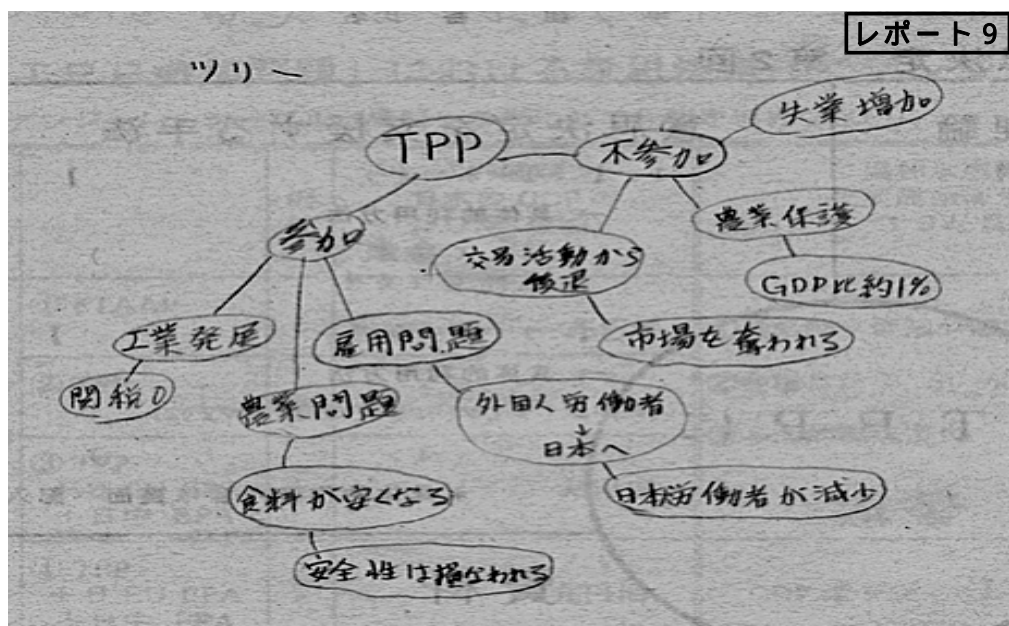 レポート9
ツリー
TPP
不参加
失業増加
農業保護
GDP比約1%
交易活動から
後退
市場を奪われる
参加
工業発展
関税0
農業問題
食料が安くなる
安全性は損なわれる
雇用問題
外国人労働者
↓
日本へ
日本労働者が減少